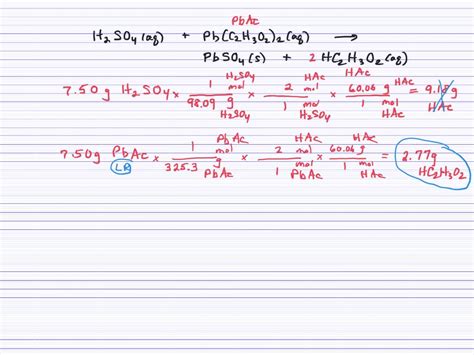 PbAc
H₂SO₄(aq) + Pb(C₂H₃O₂)₂(aq) ⟶
PbSO₄(s) + 2 HC₂H₃O₂(aq)
7.50g H₂SO₄ × 1 mol H₂SO₄ / 98.09 g H₂SO₄ × 2 mol HAc / 1 mol H₂SO₄ × 60.06 g HAc / 1 mol HAc = 9.18g HAc
7.50g PbAc × 1 mol PbAc / 325.3 g PbAc × 2 mol HAc / 1 mol PbAc × 60.06 g HAc / 1 mol HAc = 2.77g HC₂H₃O₂
LR